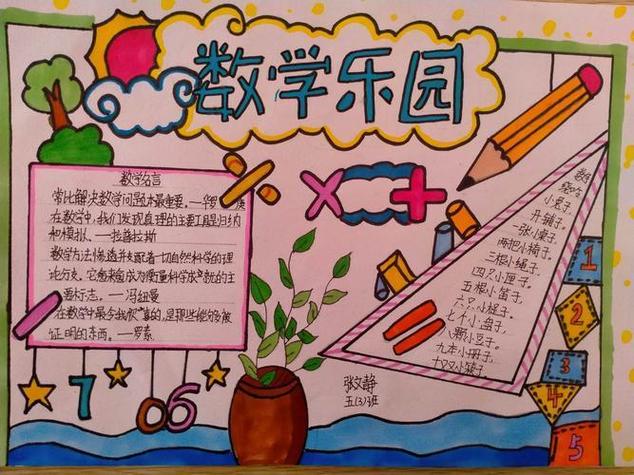 数学乐园
数学名言
常比解决数学问题本最重要、—华罗
在数学中,我们发现真理的主要工具是归纳
和模拟、—拉普拉斯
数学方法渗透并支配着一切自然科学的理
论分支。它愈来愈成为衡量科学成就的主
要标志。—冯纽曼
在数学中最令我欣喜的,是那些能够被
证明的东西。—罗素
× +
数学
小兔子,
开铺子,
一张小桌子,
两把小椅子,
三根小绳子,
四只小匣子,
五根小笛子,
六只小棍子,
七个小盘子,
八颗小豆子。
九本小册子,
1
2
3
4
5
7
06
张文静
五(3)班